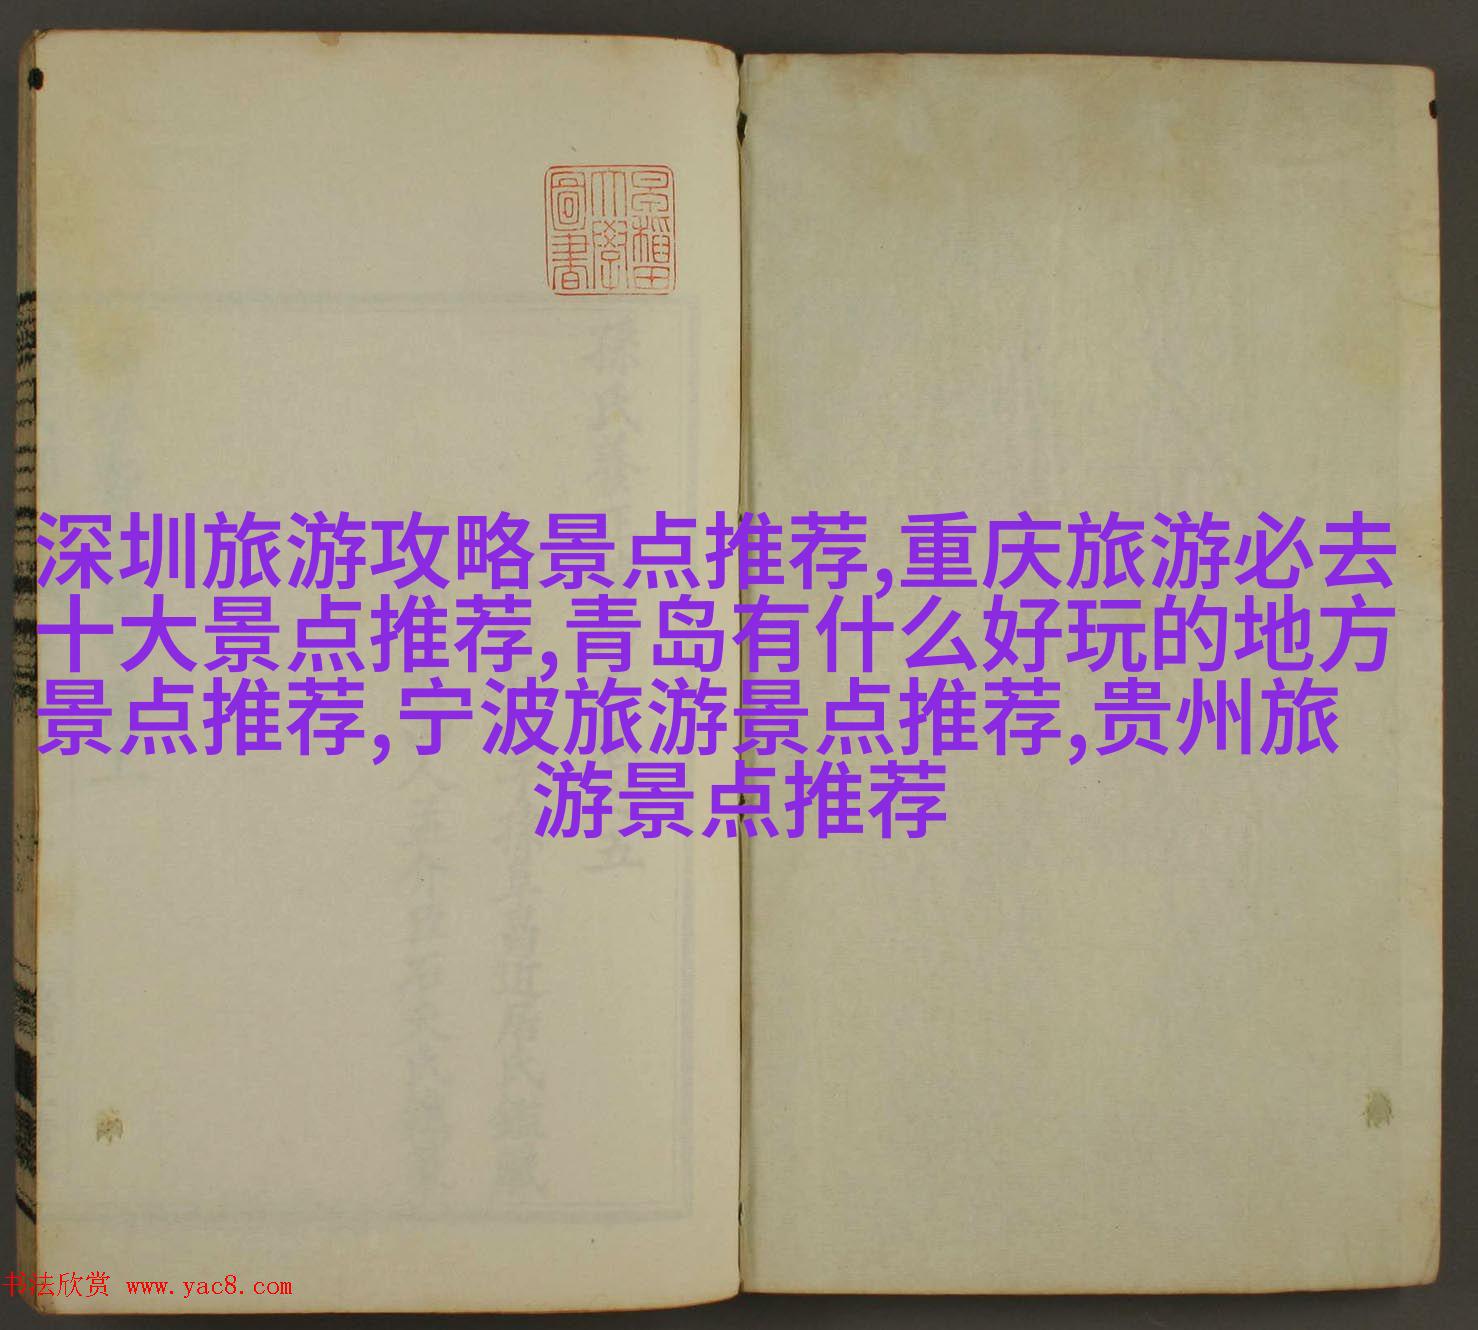 早稲田
大學
圖書
深圳旅游攻略景点推荐,重庆旅游必去
十大景点推荐,青岛有什么好玩的地方
景点推荐,宁波旅游景点推荐,贵州旅
游景点推荐
书法欣赏 www.yac8.com